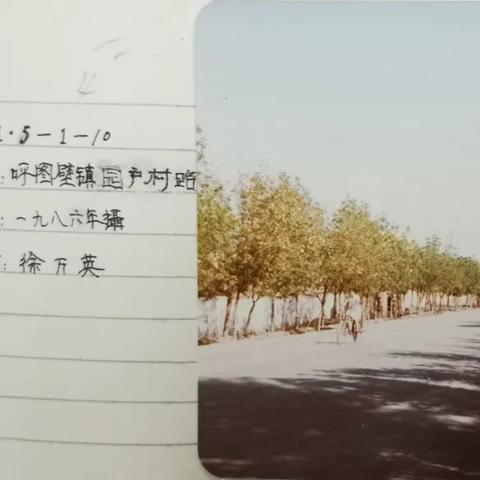 ·5-1-10
:呼图壁镇园户村路
:一九八六年攝
:徐万英